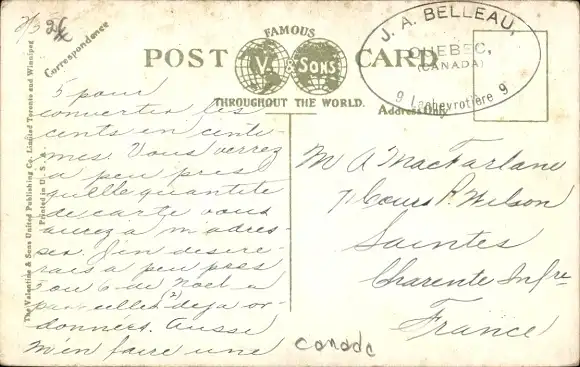 2/3
Correspondence
FAMOUS
POST CARD
V. & SONS
THROUGHOUT THE WORLD.
Address Only
J. A. BELLEAU,
QUEBEC,
(CANADA)
9 Lachevrotière 9
The Valentine & Sons United Publishing Co. Limited Toronto and Winnipeg
Printed in U. S. A.
5 pour
convertir les
cents en centi-
mes. Vous verrez
a peu pres
quelle quantite
de carte vous
aurez a m'adres-
ser. J'en desire-
rais a peu pres
5 ou 6 de Noel a
(2) deja or-
données. Aussi
m'en faire une
M A MacFarlane
7 Cours P. Wilson
Saintes
Charente Infre
France
canada